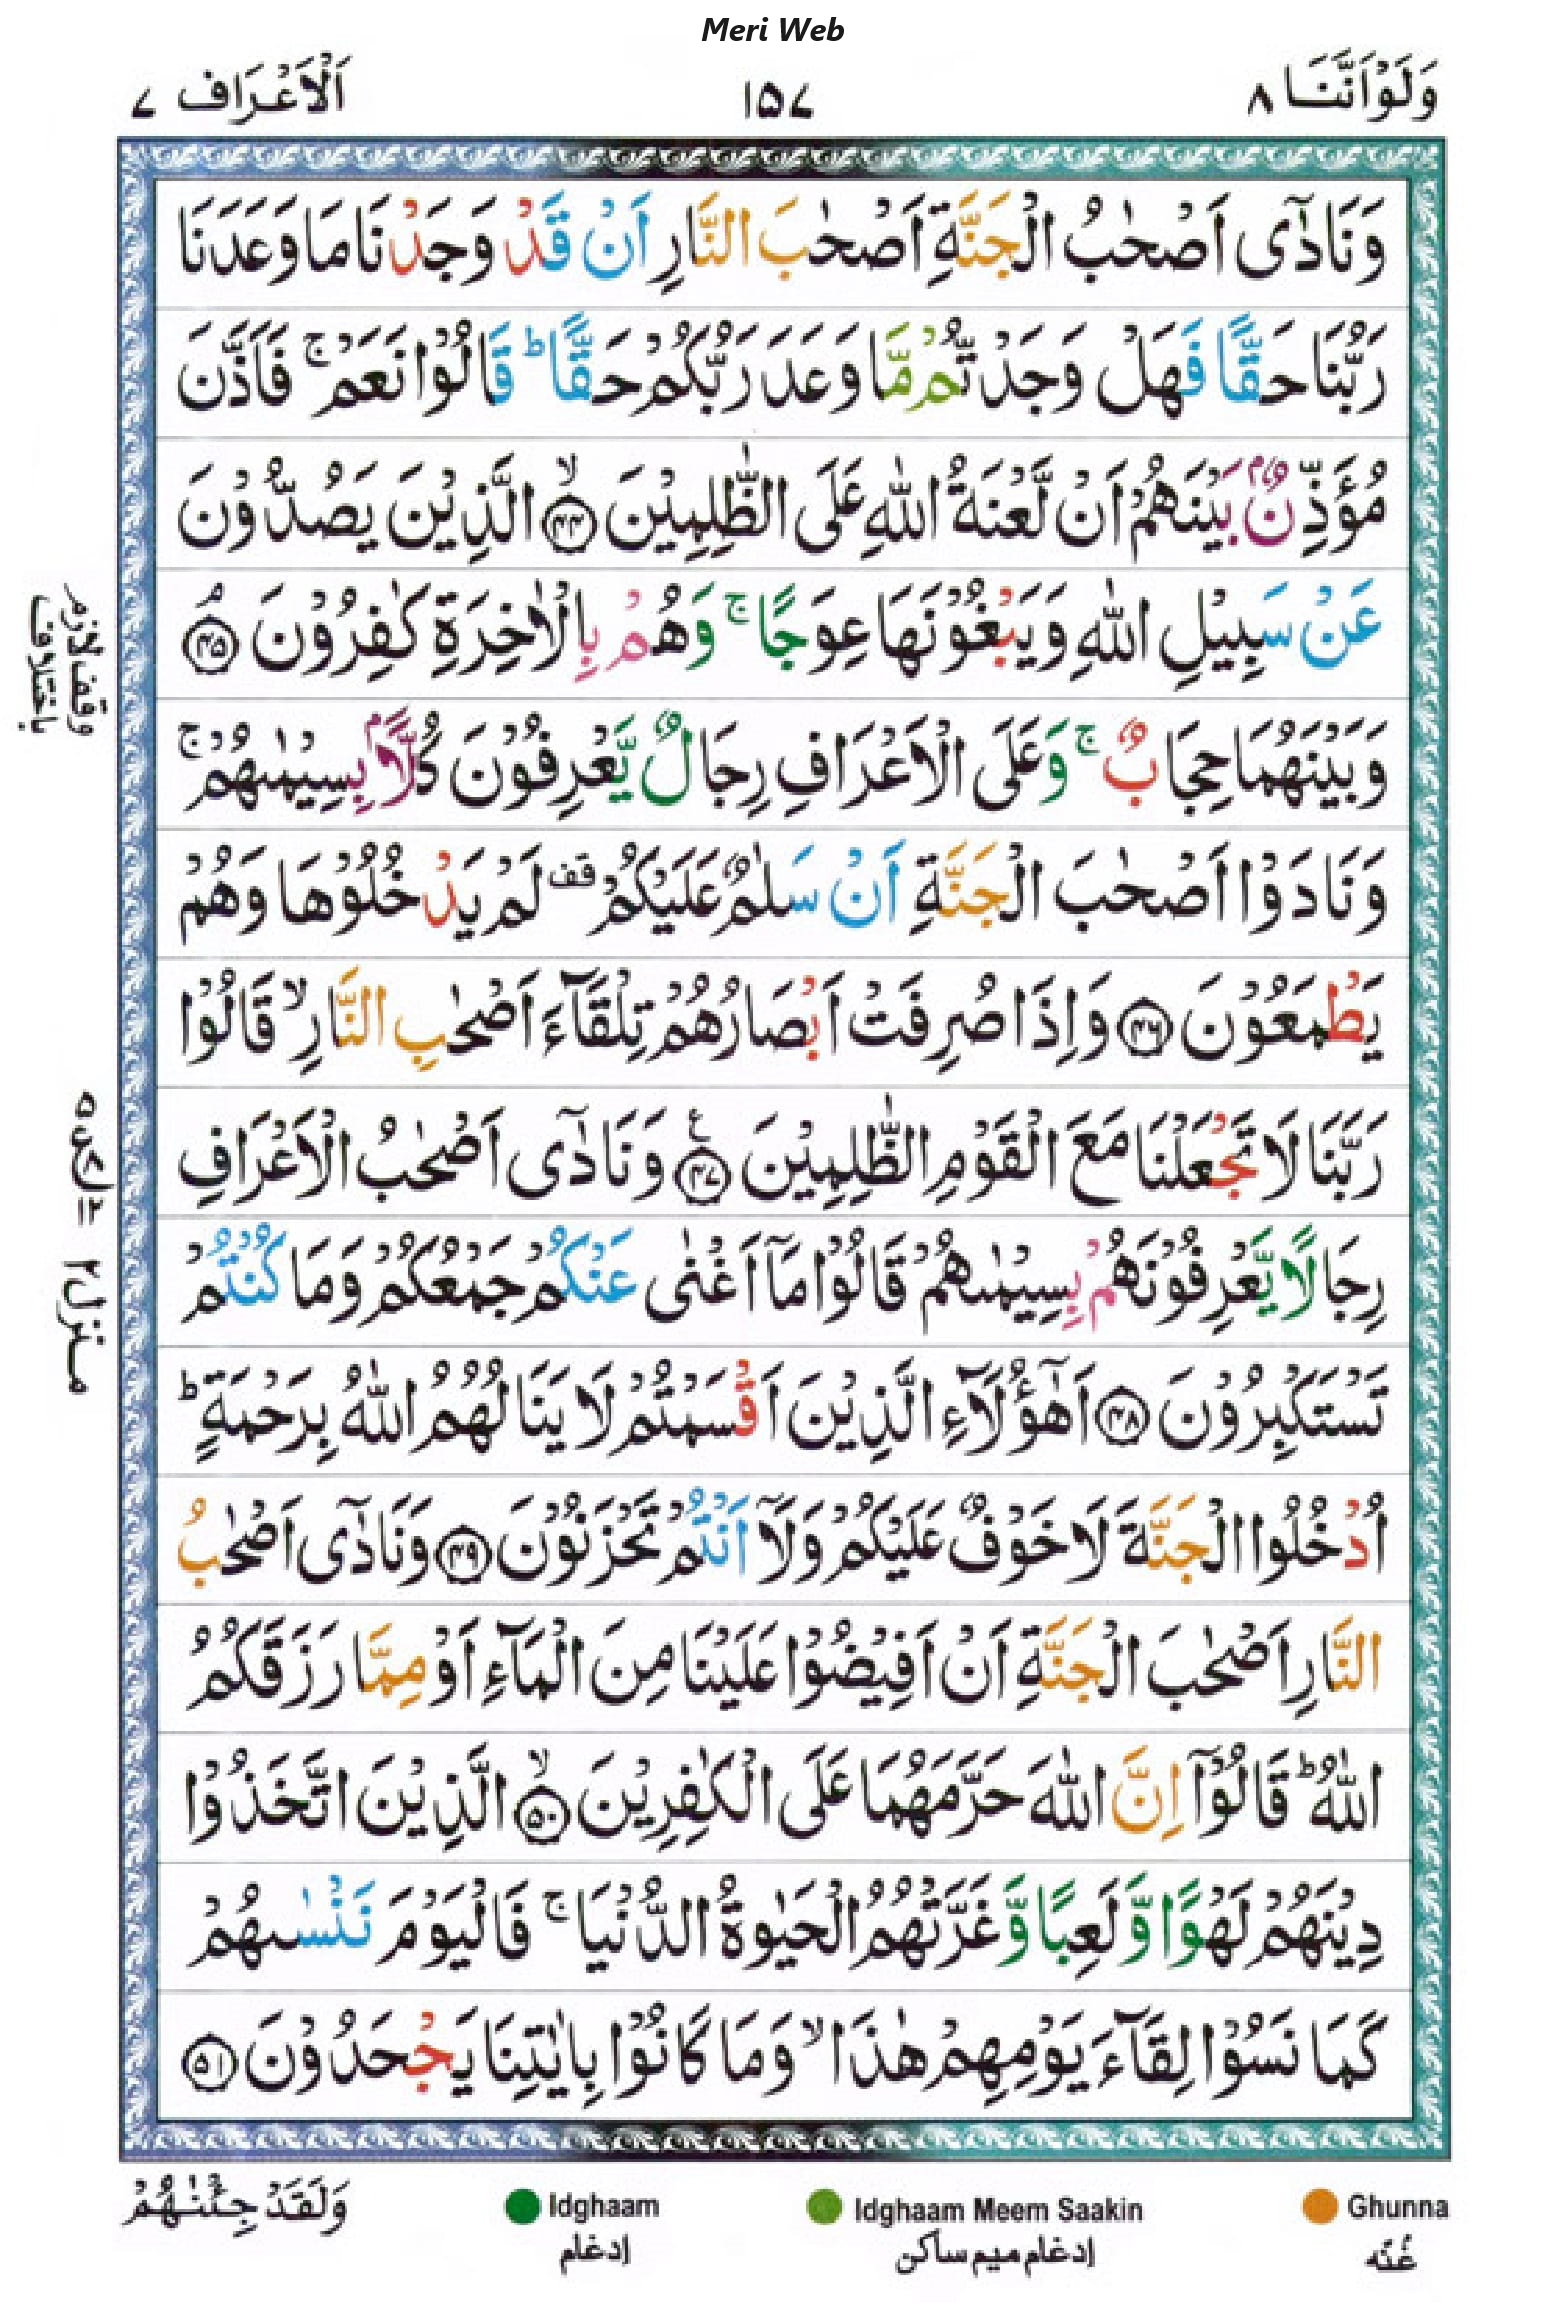 Meri Web
وَلَوْاَنَّنَا ٨
١٥٧
اَلْاَعْرَاف ٧
وَنَادٰۤى اَصْحٰبُ الْجَنَّةِ اَصْحٰبَ النَّارِ اَنْ قَدْ وَجَدْنَا مَا وَعَدَنَا
رَبُّنَا حَقًّا فَهَلْ وَجَدْتُّمْ مَّا وَعَدَ رَبُّكُمْ حَقًّا ؕ قَالُوْا نَعَمْ ۚ فَاَذَّنَ
مُؤَذِّنٌۢ بَيْنَهُمْ اَنْ لَّعْنَةُ اللّٰهِ عَلَى الظّٰلِمِيْنَ ۙ‏﴿۴۴﴾ الَّذِيْنَ يَصُدُّوْنَ
عَنْ سَبِيْلِ اللّٰهِ وَيَبْغُوْنَهَا عِوَجًا ۚ وَهُمْ بِالْاٰخِرَةِ كٰفِرُوْنَ ۘ‏﴿۴۵﴾
وَبَيْنَهُمَا حِجَابٌ ۚ وَعَلَى الْاَعْرَافِ رِجَالٌ يَّعْرِفُوْنَ كُلًّاۢ بِسِيْمٰىهُمْ ۚ
وَنَادَوْا اَصْحٰبَ الْجَنَّةِ اَنْ سَلٰمٌ عَلَيْكُمْ قف لَمْ يَدْخُلُوْهَا وَهُمْ
يَطْمَعُوْنَ ﴿۴۶﴾ وَاِذَا صُرِفَتْ اَبْصَارُهُمْ تِلْقَآءَ اَصْحٰبِ النَّارِ ۙ قَالُوْا
رَبَّنَا لَا تَجْعَلْنَا مَعَ الْقَوْمِ الظّٰلِمِيْنَ ﴿۴۷﴾ ع وَنَادٰۤى اَصْحٰبُ الْاَعْرَافِ
رِجَالًا يَّعْرِفُوْنَهُمْ بِسِيْمٰىهُمْ قَالُوْا مَاۤ اَغْنٰى عَنْكُمْ جَمْعُكُمْ وَمَا كُنْتُمْ
تَسْتَكْبِرُوْنَ ﴿۴۸﴾ اَهٰۤؤُلَآءِ الَّذِيْنَ اَقْسَمْتُمْ لَا يَنَالُهُمُ اللّٰهُ بِرَحْمَةٍ ؕ
اُدْخُلُوا الْجَنَّةَ لَا خَوْفٌ عَلَيْكُمْ وَلَاۤ اَنْتُمْ تَحْزَنُوْنَ ﴿۴۹﴾ وَنَادٰۤى اَصْحٰبُ
النَّارِ اَصْحٰبَ الْجَنَّةِ اَنْ اَفِيْضُوْا عَلَيْنَا مِنَ الْمَآءِ اَوْ مِمَّا رَزَقَكُمُ
اللّٰهُ ؕ قَالُوْۤا اِنَّ اللّٰهَ حَرَّمَهُمَا عَلَى الْكٰفِرِيْنَ ۙ‏﴿۵۰﴾ الَّذِيْنَ اتَّخَذُوْا
دِيْنَهُمْ لَهْوًا وَّلَعِبًا وَّغَرَّتْهُمُ الْحَيٰوةُ الدُّنْيَا ۚ فَالْيَوْمَ نَنْسٰىهُمْ
كَمَا نَسُوْا لِقَآءَ يَوْمِهِمْ هٰذَا ۙ وَمَا كَانُوْا بِاٰيٰتِنَا يَجْحَدُوْنَ ﴿۵۱﴾
وقف لازم
باختلاف
منزل ٢
Ghunna
غُنّه
Idghaam Meem Saakin
إدغام ميم ساكن
Idghaam
إدغام
وَلَقَدْ جِئْنٰهُمْ